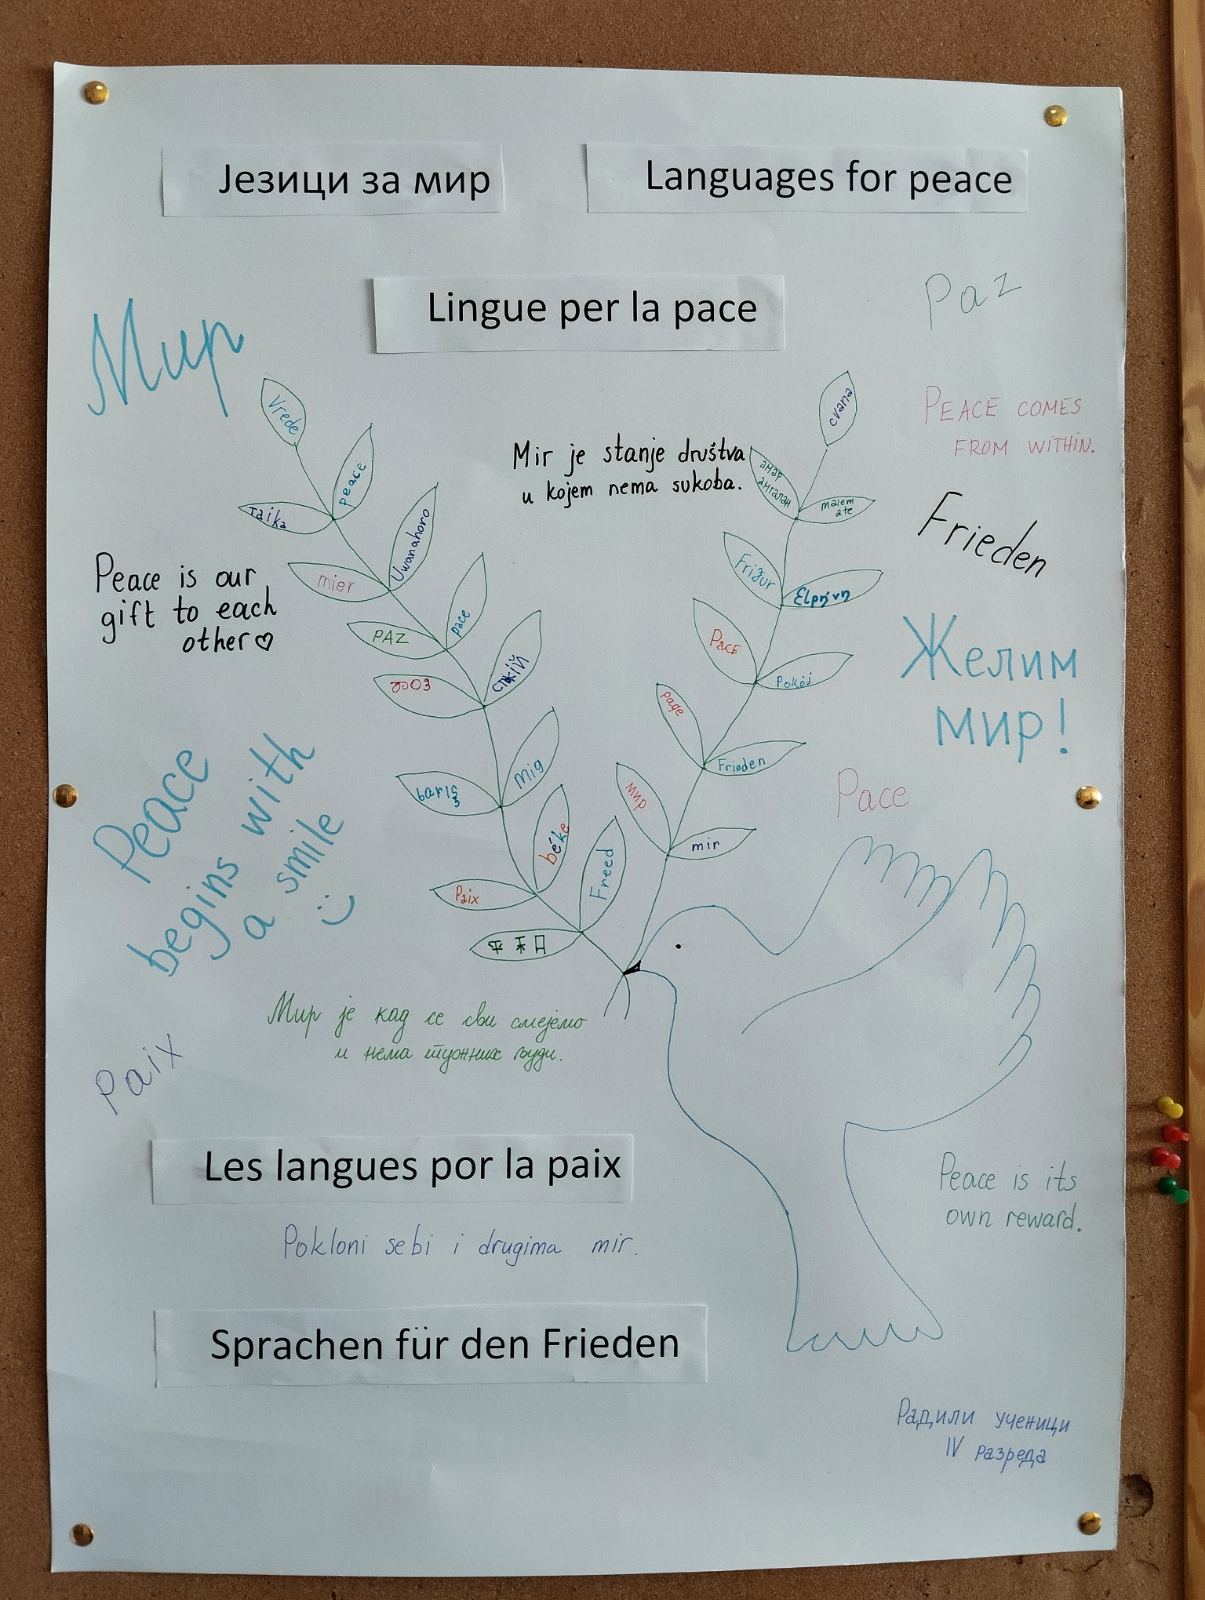 Језици за мир
Languages for peace
Lingue per la pace
Paz
Мир
PEACE COMES
FROM WITHIN.
Mir je stanje društva
u kojem nema sukoba.
Frieden
Peace is our
gift to each
other
Желим
мир!
Peace
begins with
a smile
Pace
Vrede
peace
Taika
Uwanahoro
mier
pace
PAZ
спокій
mig
barış
béke
Paix
Freed
cvana
амар
ангалан
malem
ate
Friður
Ειρήνη
PACE
Pokój
paqe
Frieden
мир
mir
Мир је кад се сви смејемо
и нема тужних људи.
Paix
Les langues por la paix
Peace is its
own reward.
Pokloni sebi i drugima mir.
Sprachen für den Frieden
Радили ученици
IV разреда